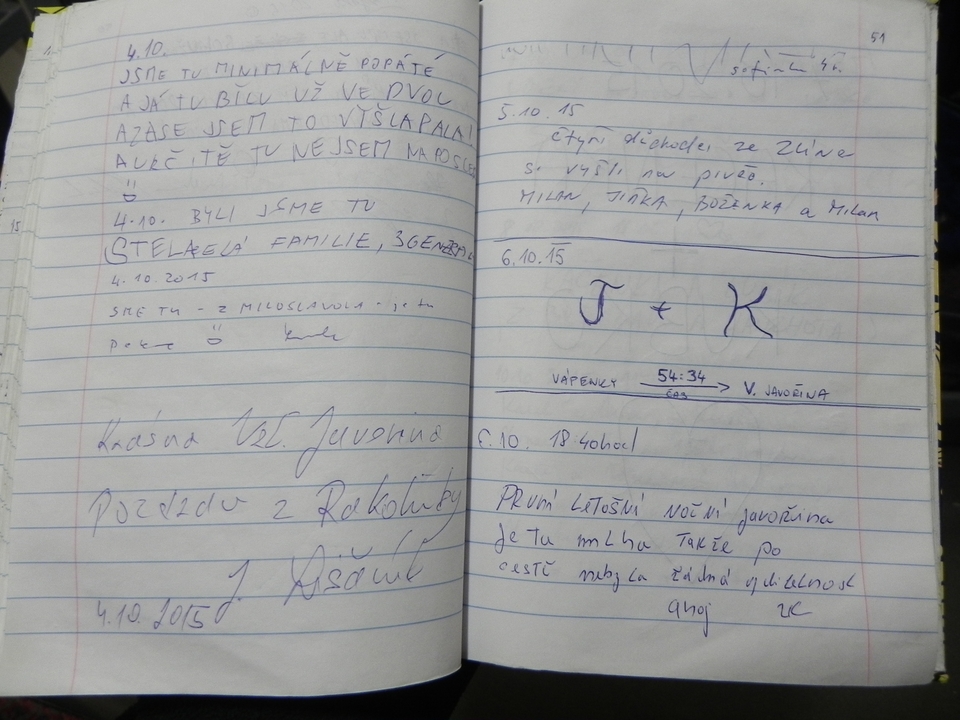 4.10.
JSME TU MINIMÁLNĚ POPÁTÉ
A JÁ TU BÝLU UŽ VE DVOU
A ZASE JSEM TO VYŠLAPALA!
A URČITĚ TU NEJSEM NAPOSLED
4.10. BYLI JSME TU
FAMILIE, 3GENERAC
4.10.2015
SME TU - Z MILOSLAVOLA - je tu
Pekne
Krásna Veľ. Javorina
Pozdrav z Rakoľuby
J.
4.10.2015
51
sofinka 4r.
5.10.15
čtyři důchodci ze Zlína
si vyšli na píveč.
MILAN, JIŘKA, BOŽENKA a Milan
6.10.15
J + K
VÁPENKY 54:34 ČAS V. JAVOŘINA
6.10. 18 40hod
PRVNÍ LETOŠNÍ NOČNÍ javořina
Je tu mlha TAKŽE po
cestě nebyla žádná viditelnost
ahoj ZK